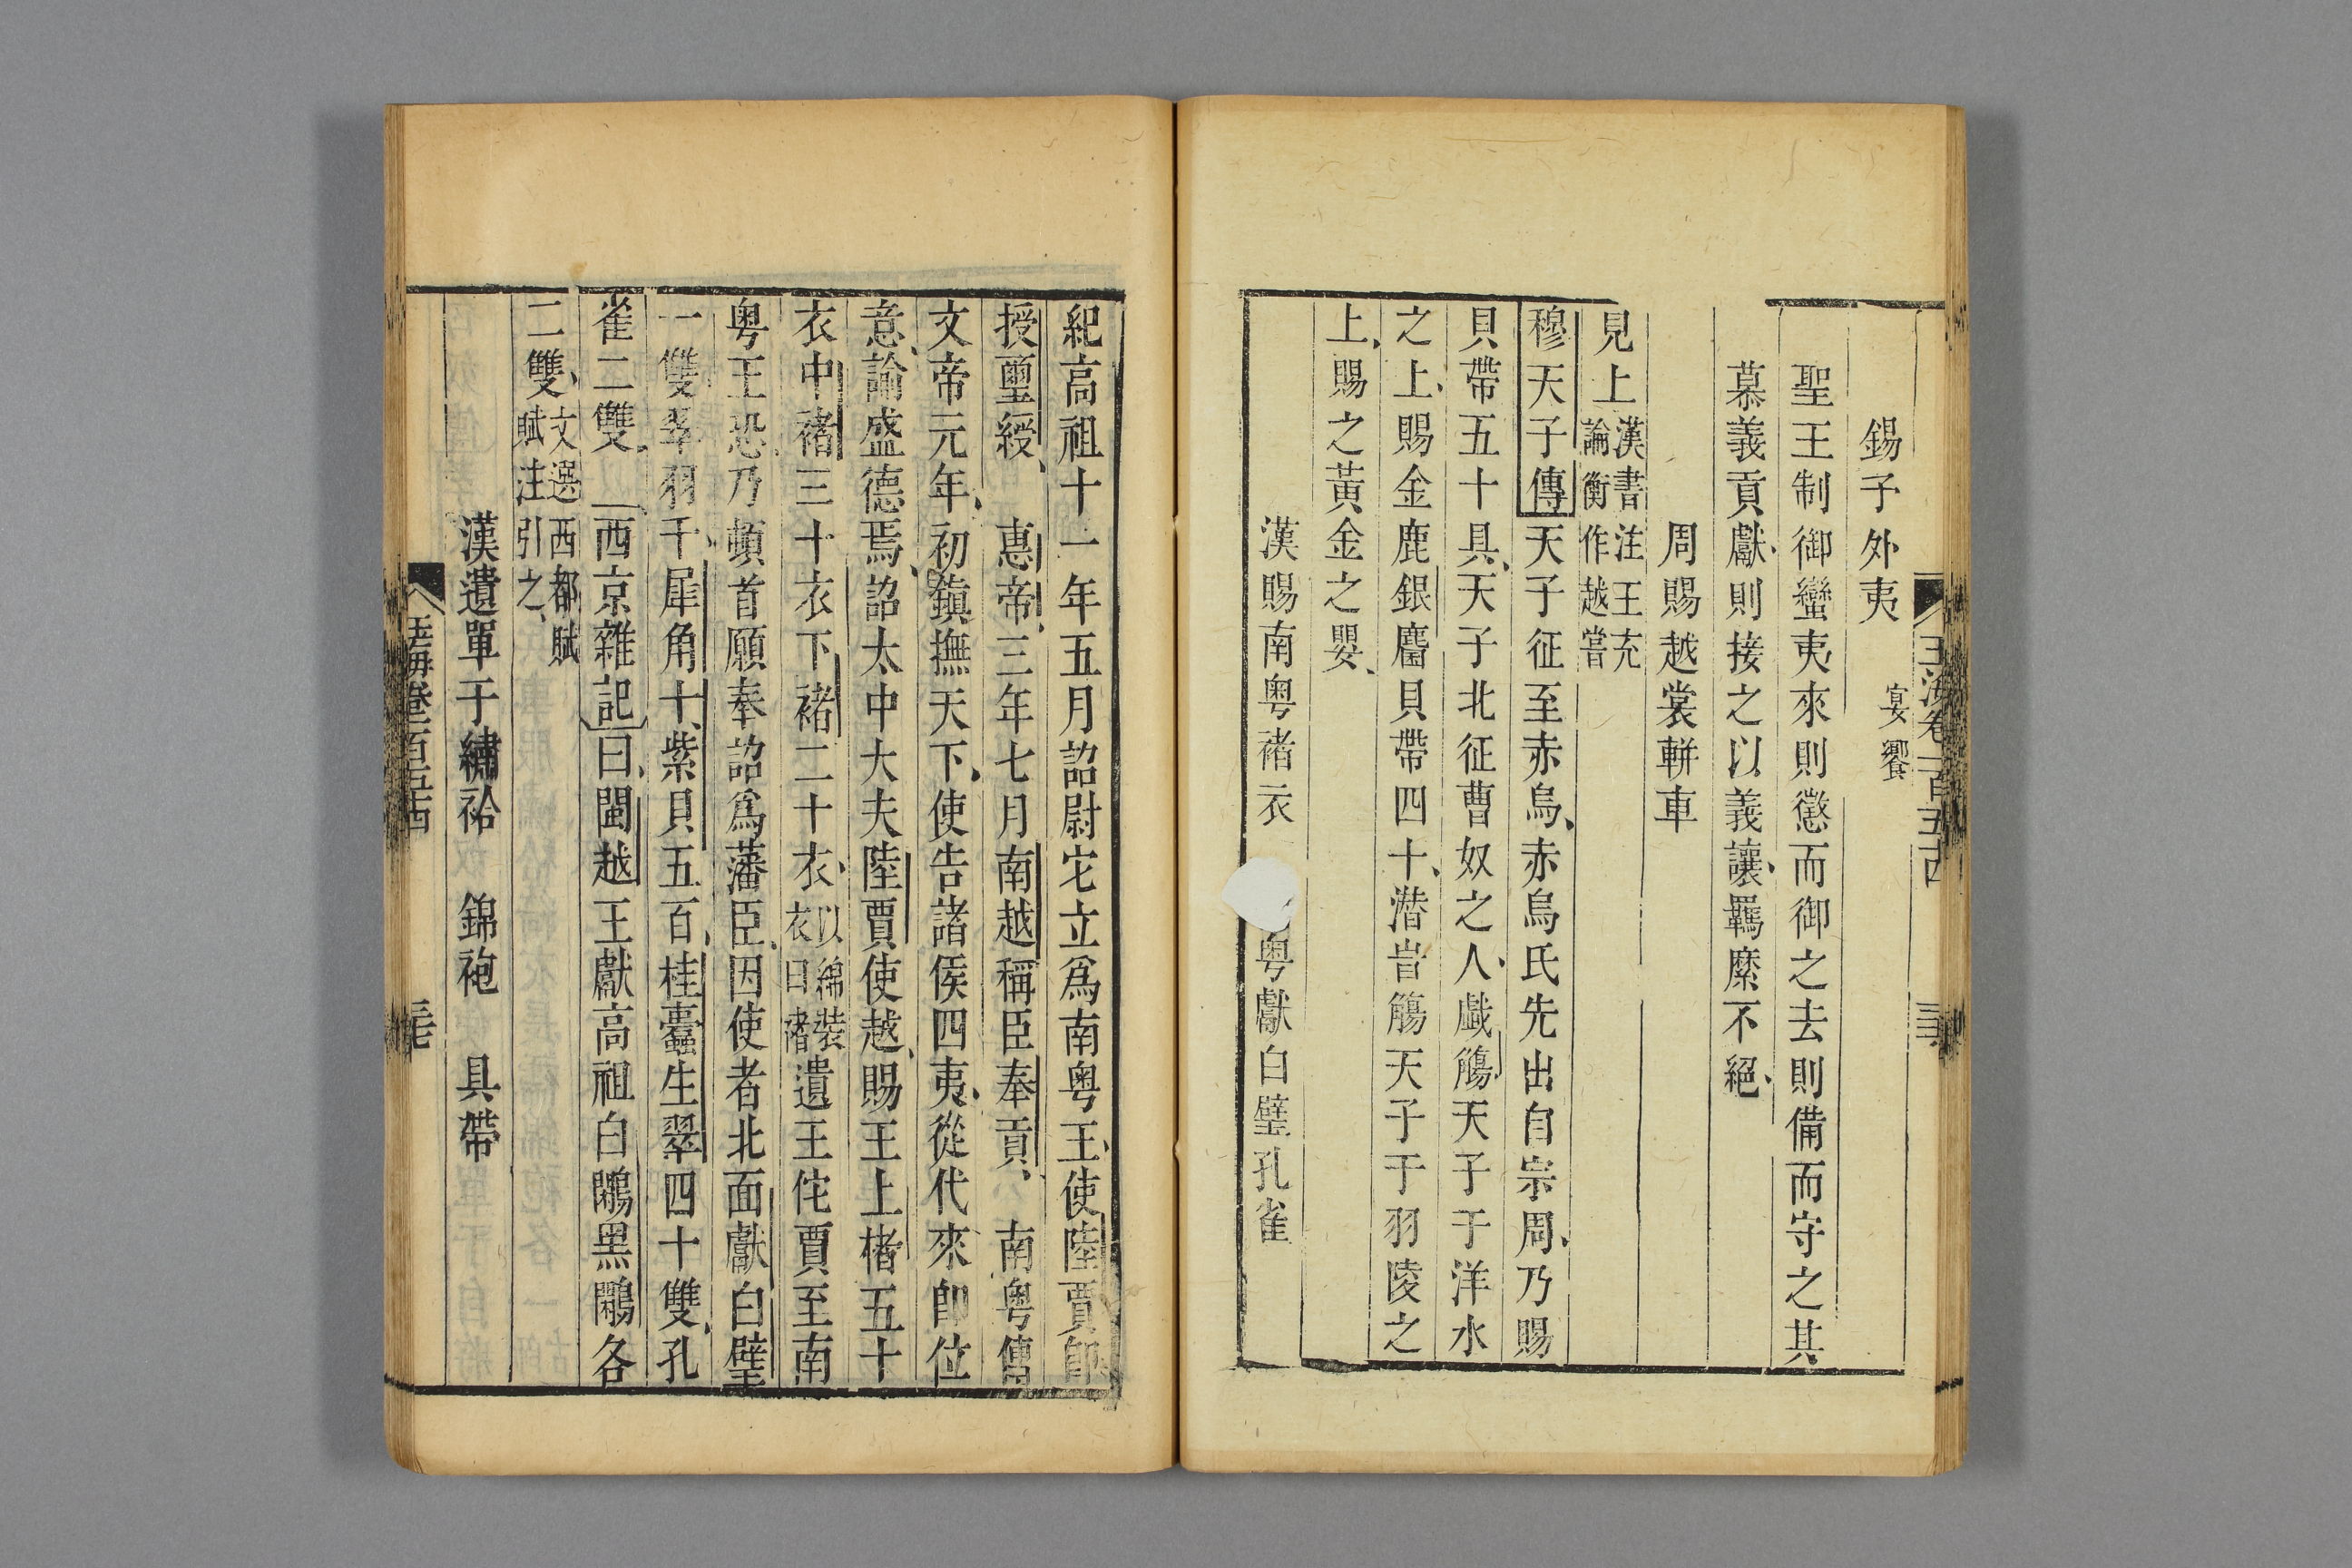 錫予外夷 宴饗
聖王制御蠻夷來則懲而御之去則備而守之其
慕義貢獻則接之以義讓羈縻不絕
周賜越裳輧車
見上 漢書注王充
論衡作越嘗
穆天子傳天子征至赤烏赤烏氏先出自宗周乃賜
貝帶五十具天子北征曹奴之人戲觴天子于洋水
之上上賜金鹿銀麕貝帶四十潛旹觴天子于羽陵之
上賜之黃金之嬰
漢賜南粵褚衣 粵獻白璧孔雀
紀高祖十一年五月詔尉它立爲南粵王使陸賈即
授璽綬 惠帝三年七月南越稱臣奉貢 南粵傳
文帝元年初鎮撫天下使告諸侯四夷從代來即位
意諭盛德焉詔太中大夫陸賈使越賜王上褚五十
衣中褚三十衣下褚二十衣 以綿裝
衣曰褚 遺王佗賈至南
粵王恐乃頓首願奉詔爲藩臣因使者北面獻白璧
一雙翠羽千犀角十紫貝五百桂蠹生翠四十雙孔
雀二雙 西京雜記曰閩越王獻高祖白鷴黑鷴各
二雙 文選西都賦
賦注引之
漢遺單于繡袷 錦袍 具帶
玉海卷一百五十四